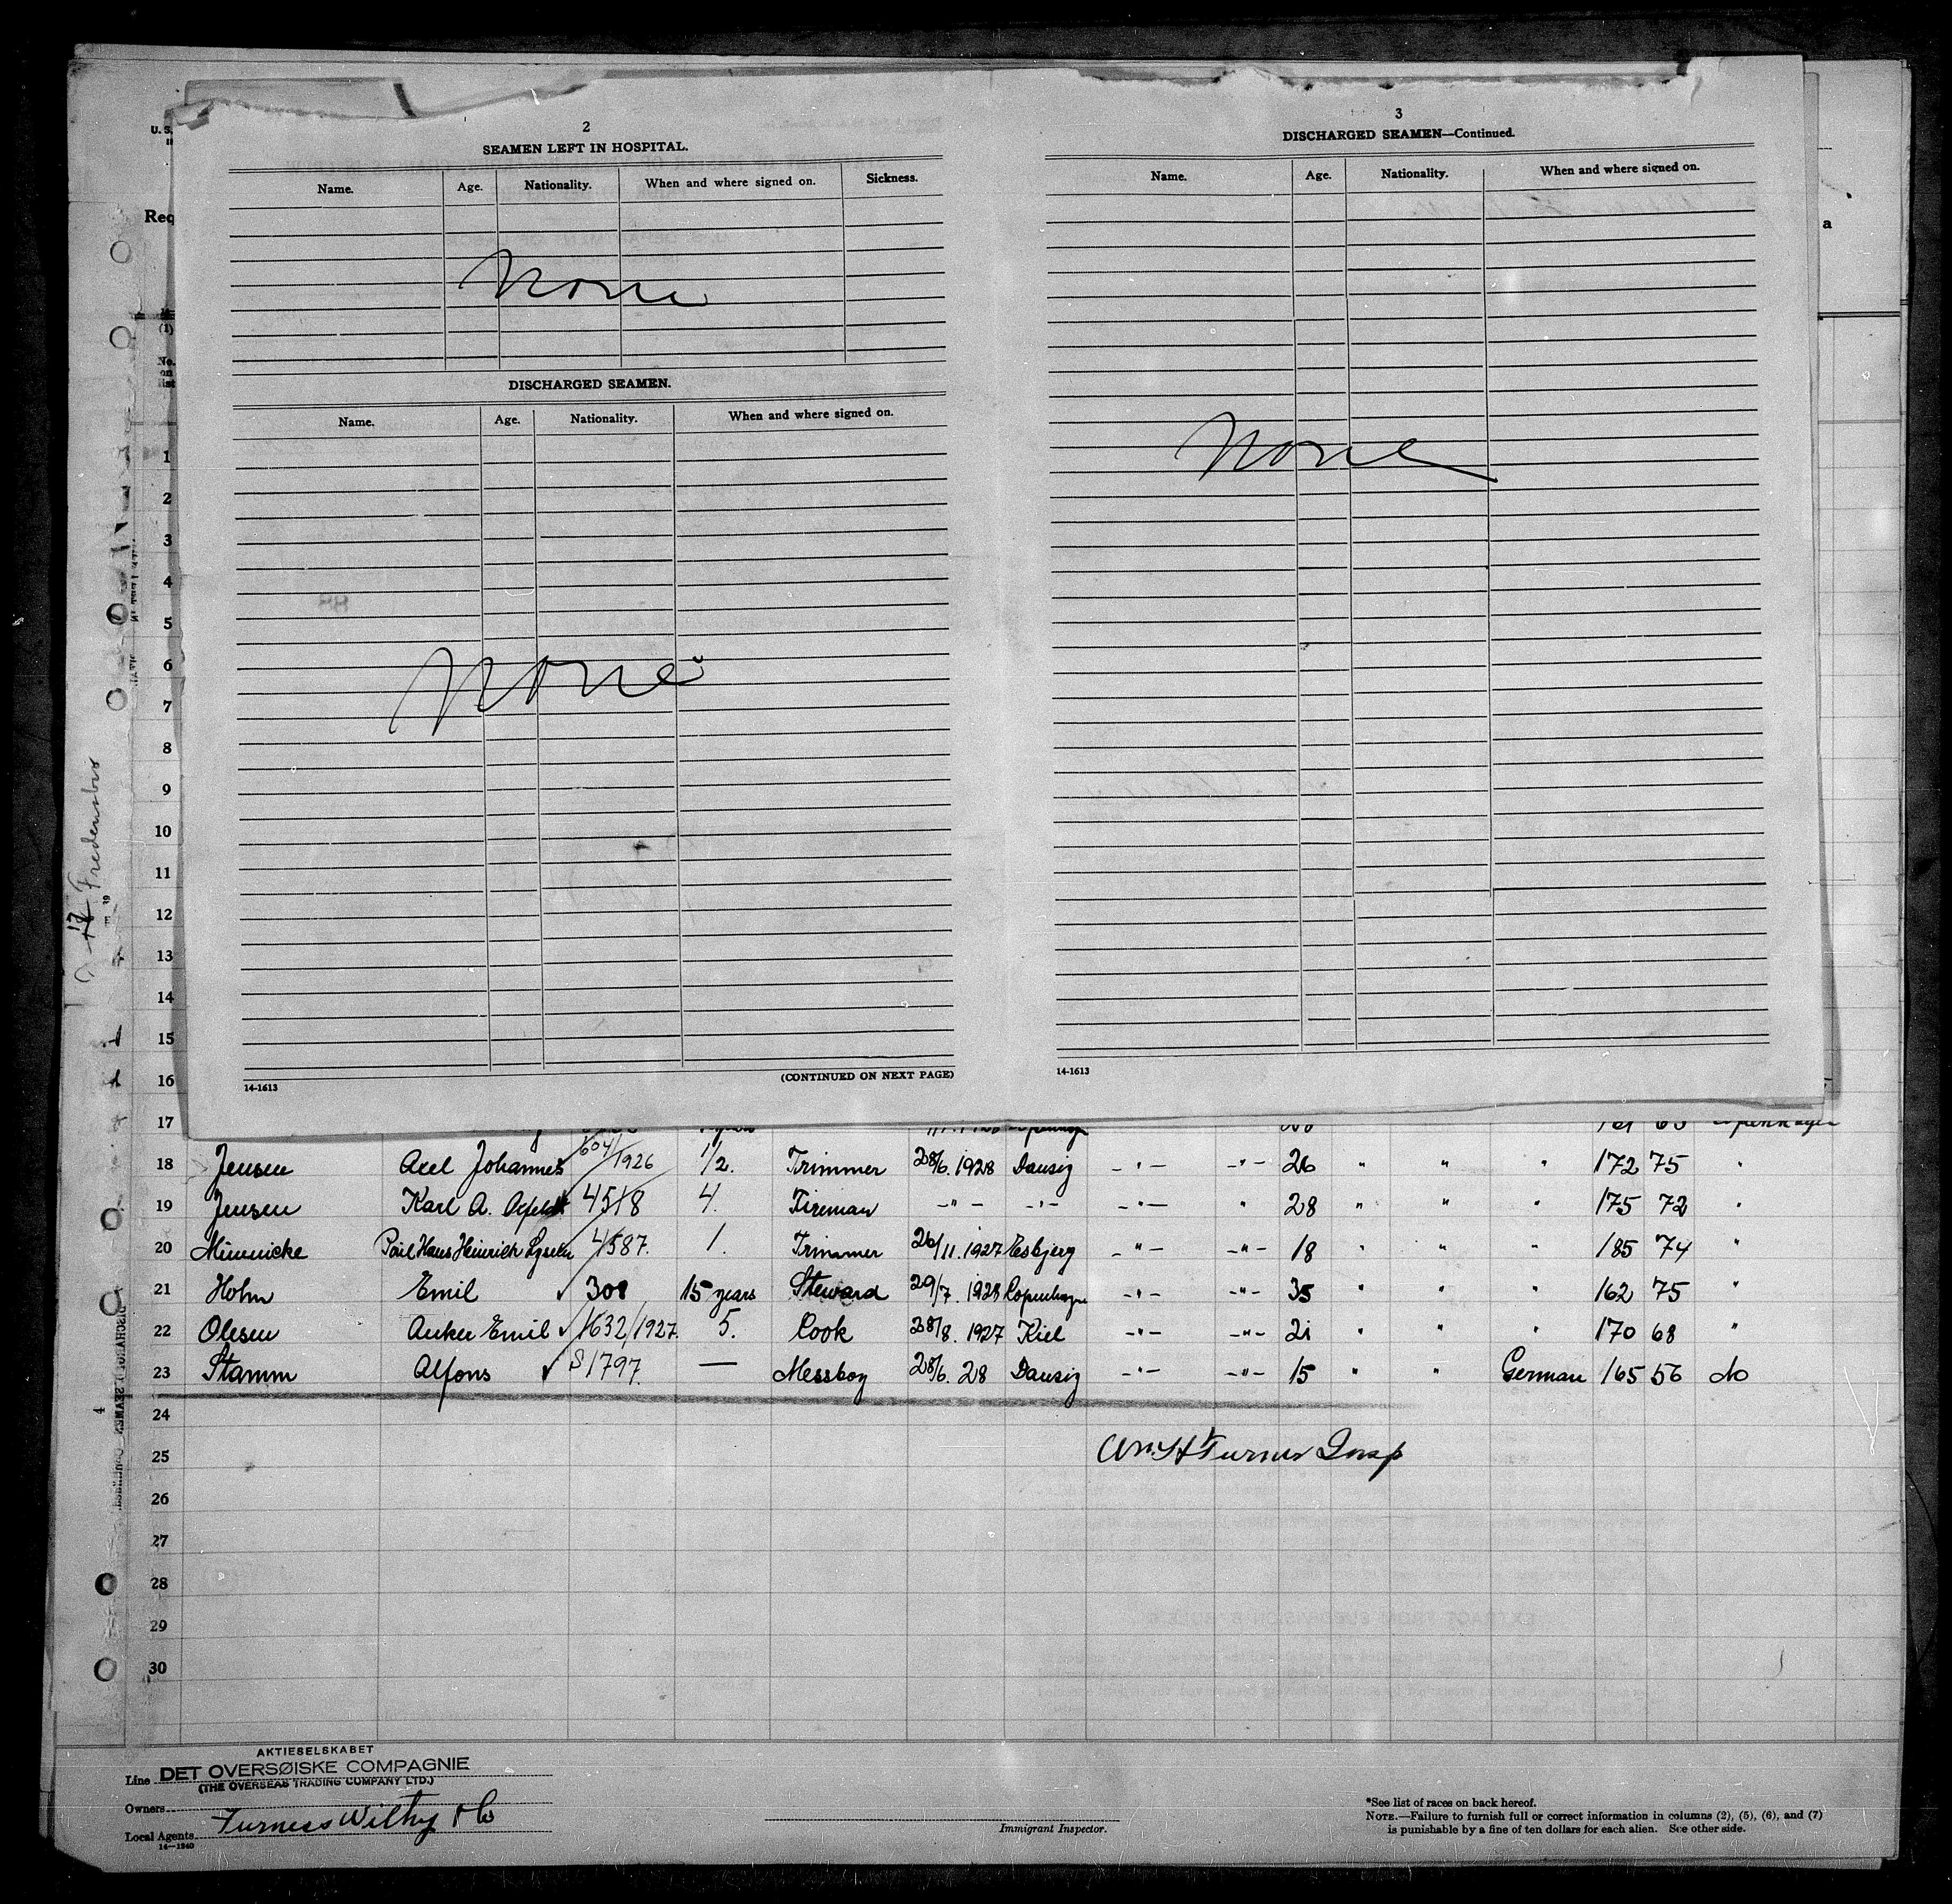 2
SEAMEN LEFT IN HOSPITAL.
Name. Age. Nationality. When and where signed on. Sickness.
None
DISCHARGED SEAMEN.
Name. Age. Nationality. When and where signed on.
None
14-1613
(CONTINUED ON NEXT PAGE)
3
DISCHARGED SEAMEN—Continued.
Name. Age. Nationality. When and where signed on.
None
14-1613
U. S.
Req
a
(1)
No.
on
list
1
2
3
4
5
6
7
8
9
10
11
12
13
14
15
16
17
18 Jensen Axel Johannes 604/1926 1/2. Trimmer 28/6. 1928 Danzig -"- -"- 26 " " " 172 75 "
19 Jensen Karl A. 4518 4. Fireman -"- -"- -"- " 28 " " " 175 72 "
20 Minnicke Poul Hans Heinrich 4587. 1. Trimmer 26/11. 1927 Esbjerg -"- -"- 18 " " " 185 74 "
21 Holm Emil 308 15 years Steward 29/7. 1928 Copenhagen -"- -"- 35 " " " 162 75 "
22 Olesen Anker Emil 1632/1927. 5. Cook 28/8. 1927 Kiel -"- -"- 21 " " " 170 68 "
23 Stamm Alfons S1797. — Messboy 28/6. 28 Danzig -"- -"- 15 " " German 165 56 No
24
25 Wm H Turner Insp
26
27
28
29
30
AKTIESELSKABET
Line DET OVERSØISKE COMPAGNIE
(THE OVERSEAS TRADING COMPANY LTD.)
Owners
Local Agents Furness Withy & Co
14—1240
Immigrant Inspector.
*See list of races on back hereof.
NOTE.—Failure to furnish full or correct information in columns (2), (5), (6), and (7)
is punishable by a fine of ten dollars for each alien. See other side.